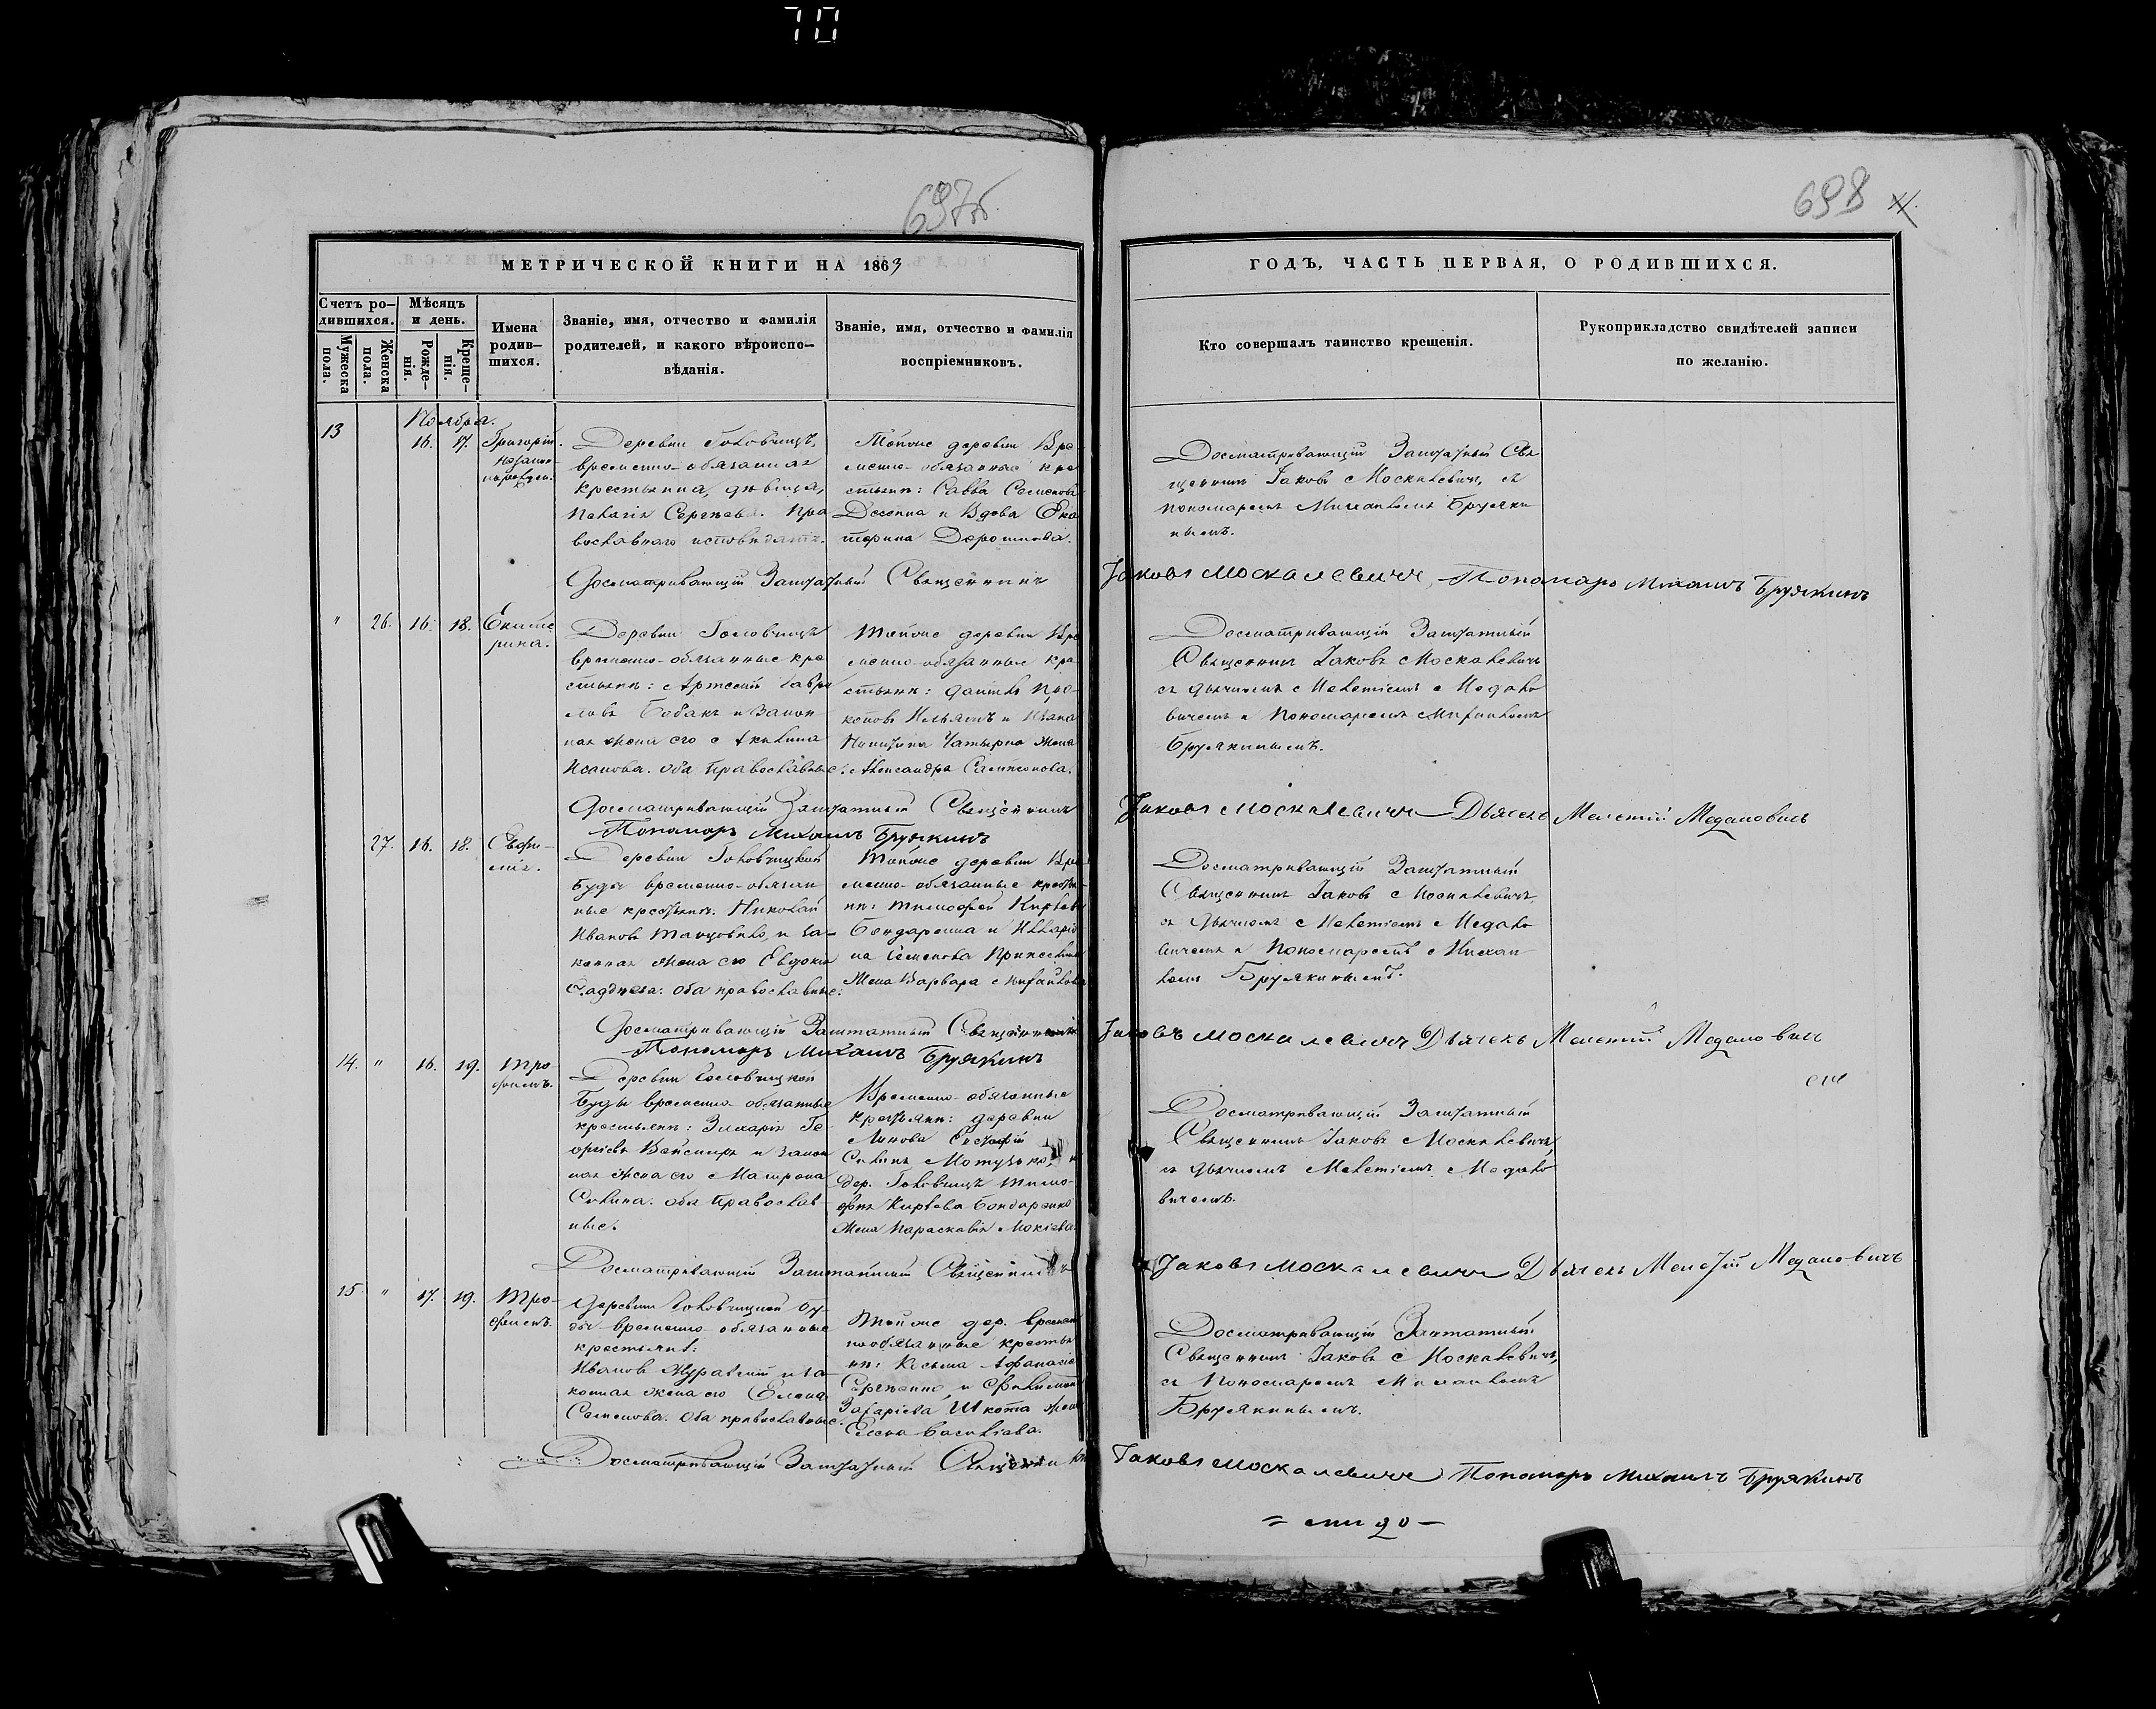 70
697об.
698
МЕТРИЧЕСКОЙ КНИГИ НА 1863
Счетъ ро-
дившихся.
Мужеска
пола.
Женска
пола.
Мѣсяцъ
и день.
Рожде-
нія.
Креще-
нія.
Имена
родив-
шихся.
Званіе, имя, отчество и фамилія
родителей, и какого вѣроиспо-
вѣданія.
Званіе, имя, отчество и фамилія
воспріемниковъ.
ГОДЪ, ЧАСТЬ ПЕРВАЯ, О РОДИВШИХСЯ.
Кто совершалъ таинство крещенія.
Рукоприкладство свидѣтелей записи
по желанію.
Ноября.
13
16. 17.
Григорій.
Незакон-
Деревни Головчицъ,
временно-обязанная
крестьянка, дѣвица,
Сергѣева. Пра
вославнаго исповѣданія.
Тойже деревни Вре
менно-обязанные кре
стьяне: Савва Семеновъ
и Вдова Ека
терина Дорошкова.
Досматривающій Заштатный Свя
щенникъ Іаковъ Москалевичъ, съ
пономаремъ Михаиломъ Брузяки
нымъ.
Досматривающій Заштатный Священникъ Іаковъ Москалевичъ, Пономарь Михаилъ Брузякинъ
" 26. 16. 18.
Екате
рина.
Деревни Головчицъ
временно-обязанные кре
стьяне: Артемій Гаври
ловъ Бобакъ и закон
ная жена его Акилина
Исакова. оба православные.
Тойже деревни Вре
менно-обязанные кре
стьяне: Данилъ Про-
коповъ и Ивана
жена
Александра
Досматривающій Заштатный
Священникъ Іаковъ Москалевичъ
съ дьячкомъ Мелетіемъ Медало
вичемъ и Пономаремъ Михаиломъ
Брузякинымъ.
Досматривающій Заштатный Священникъ Іаковъ Москалевичъ Дьячекъ Мелетій Медаловичъ
Пономарь Михаилъ Брузякинъ
27. 16. 18.
Евфи-
мія.
Деревни Головчицкой
Буды временно-обязан
ные крестьяне: Николай
Ивановъ и за-
конная жена его Евдокія
Фаддеева: оба православные:
Тойже деревни Вре
менно-обязанные крестья-
не: Тимофей Кирѣевъ
Бондаренка и Иларіо
на Семенова
Жена Варвара Михайлова
Досматривающій Заштатный
Священникъ Іаковъ Москалевичъ
съ дьячкомъ Мелетіемъ Медало
вичемъ и Пономаремъ Михаи
ломъ Брузякинымъ.
Досматривающій Заштатный Священникъ Іаковъ Москалевичъ Дьячекъ Мелетій Медаловичъ
Пономарь Михаилъ Брузякинъ
14. " 16. 19.
Тро
фимъ.
Деревни Головчицкой
Буды временно-обязанные
крестьяне: Захарія Ге
оргіевъ и закон
ная жена его Матрона
Савина. оба православ-
ные.
Временно-обязанные
крестьяне: деревни
дер. Головчицъ Тимо-
фея Кирѣева Бондаренко
жена Параскевія Мокіева
Досматривающій Заштатный
Священникъ Іаковъ Москалевичъ,
съ дьячкомъ Мелетіемъ Медало
вичемъ.
Досматривающій Заштатный Священникъ Іаковъ Москалевичъ Дьячекъ Мелетій Медаловичъ
15. " 17. 19.
Тро-
фимъ.
Деревни Головчицкой Бу-
ды временно обязанные
крестьяне:
Ивановъ Журавскій и за-
конная жена его Елена
Семенова. Оба православные.
Тойже дер. времен
нообязанные крестья
не: Косьма
Сергѣенко, и Филимона
Захаріева Шкота жена
Елена Васильева.
Досматривающій Заштатный
Священникъ Іаковъ Москалевичъ,
съ Пономаремъ Михаиломъ
Брузякинымъ.
Досматривающій Заштатный Священникъ Іаковъ Москалевичъ Пономарь Михаилъ Брузякинъ